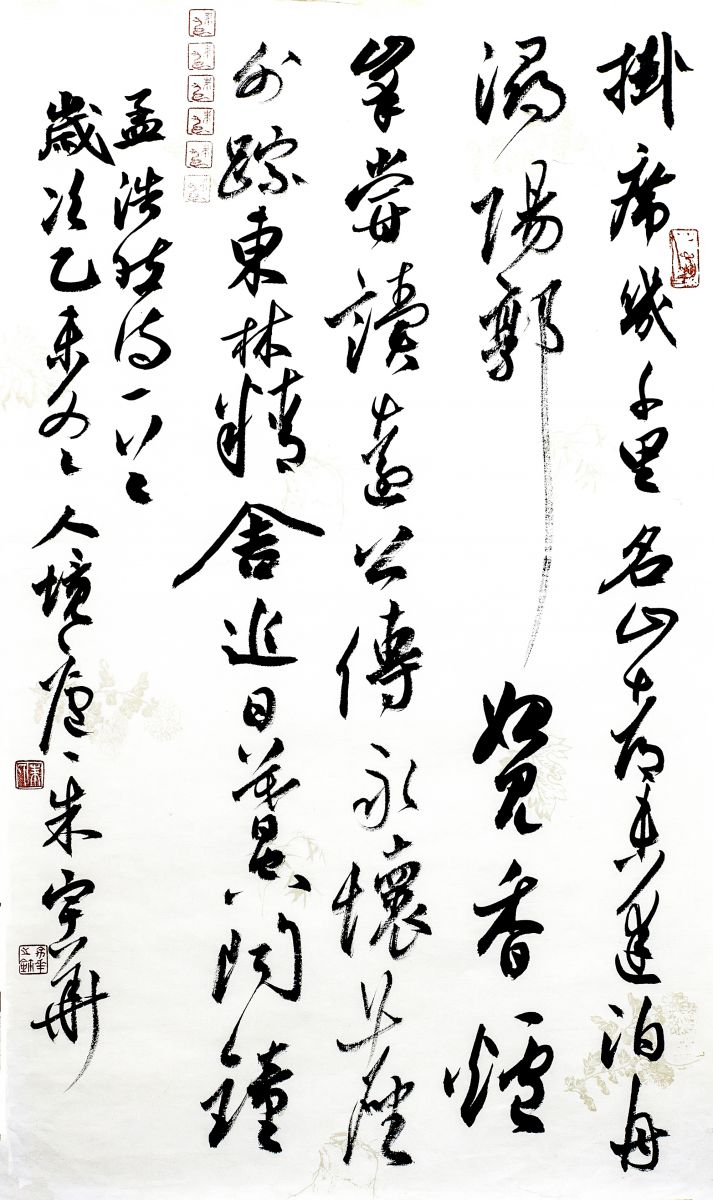 掛席幾千里名山都未逢泊舟
潯陽郭始見香爐
峯嘗讀遠公傳永懷塵
外踪東林精舍近日暮聞鐘
孟浩然詩一首
歲次乙未冬人境廬朱宇華